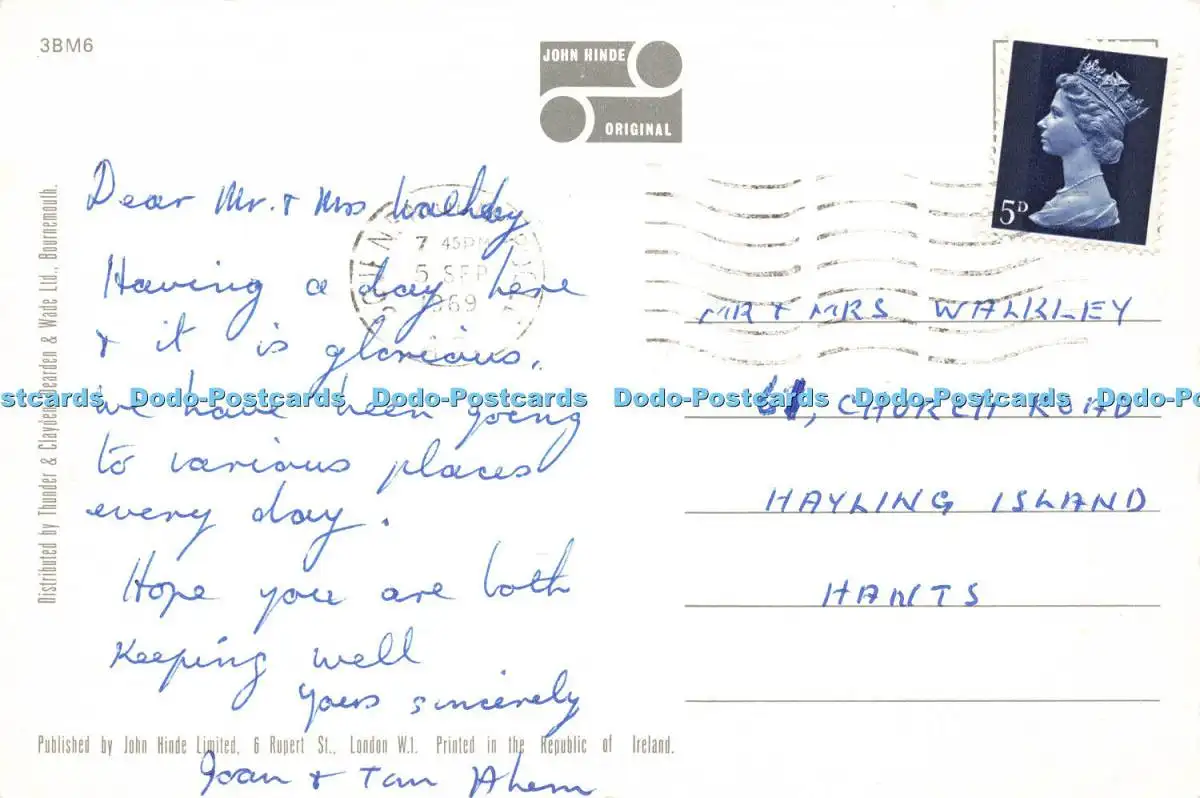 3BM6
JOHN HINDE
ORIGINAL
5D
Dear Mr. & Mrs Walkley
7 45PM
5 SEP
1969
Having a day here
& it is glorious.
We have been going
to various places
every day.
Hope you are both
Keeping well
Yours sincerely
Joan &
MR & MRS WALKLEY
CHURCH ROAD
HAYLING ISLAND
HANTS
Distributed by Thunder & Clayden, Dearden & Wade Ltd., Bournemouth.
Published by John Hinde Limited, 6 Rupert St., London W.1. Printed in the Republic of Ireland.
Dodo-Postcards Dodo-Postcards Dodo-Postcards Dodo-Postcards